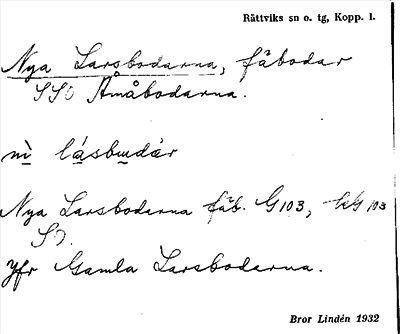 Rättviks sn o. tg, Kopp. l.
Nya Larsbodarna, fäbodar
SSO Åmåbodarna.
Nya Larsbodarna fäb. G103,
Jfr Gamla Larsbodarna.
Bror Lindén 1932